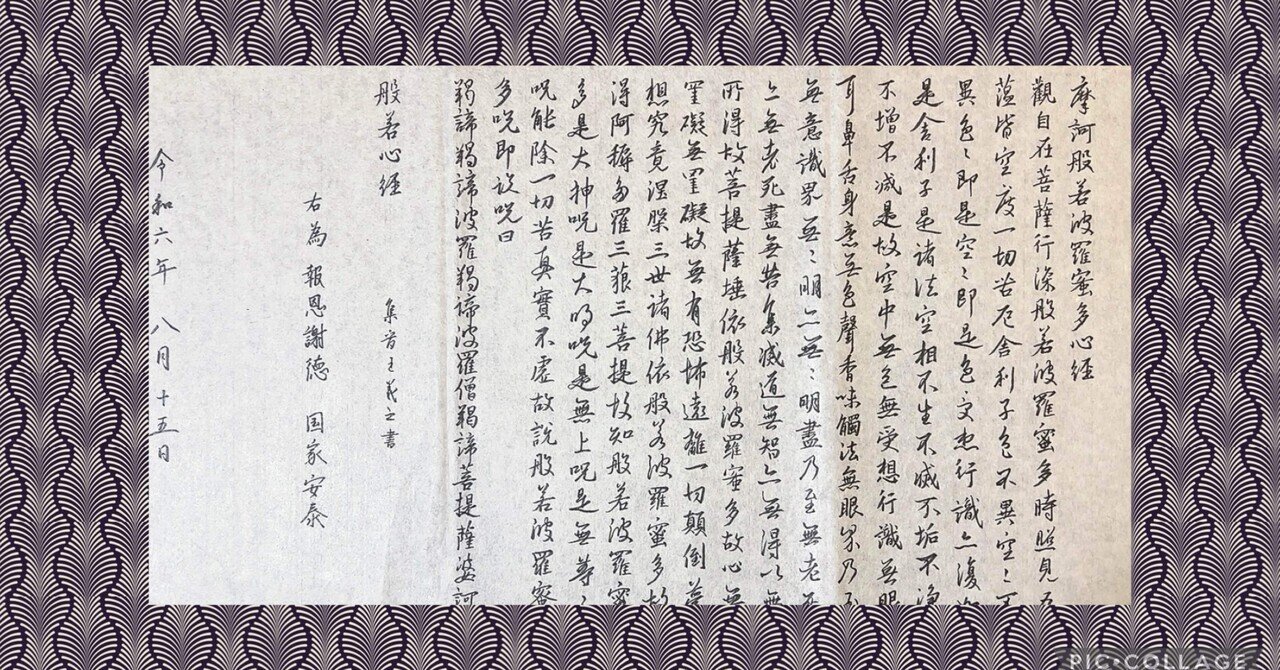 摩訶般若波羅蜜多心経
觀自在菩薩行深般若波羅蜜多時照見五
蘊皆空度一切苦厄舍利子色不異空〻不
異色〻即是空〻即是色受想行識亦復如
是舎利子是諸法空相不生不滅不垢不浄
不增不减是故空中無色無受想行識無眼
耳鼻舌身意無色聲香味觸法無眼界乃至
無意識界無〻明亦無〻明盡乃至無老死
亦無老死盡無苦集滅道無智亦無得以無
所得故菩提薩埵依般若波羅蜜多故心無
罣礙無罣礙故無有恐怖遠離一切顛倒夢
想究竟涅槃三世諸佛依般若波羅蜜多故
得阿耨多羅三藐三菩提故知般若波羅蜜
多是大神呪是大明呪是無上呪是無等〻
呪能除一切苦真實不虚故説般若波羅蜜
多呪即説呪曰
羯諦羯諦波羅羯諦波羅僧羯諦菩提薩婆訶
般若心経
王羲之書
右為 報恩謝徳 国家安泰
令和六年 八月十五日
PIC•COLLAGE